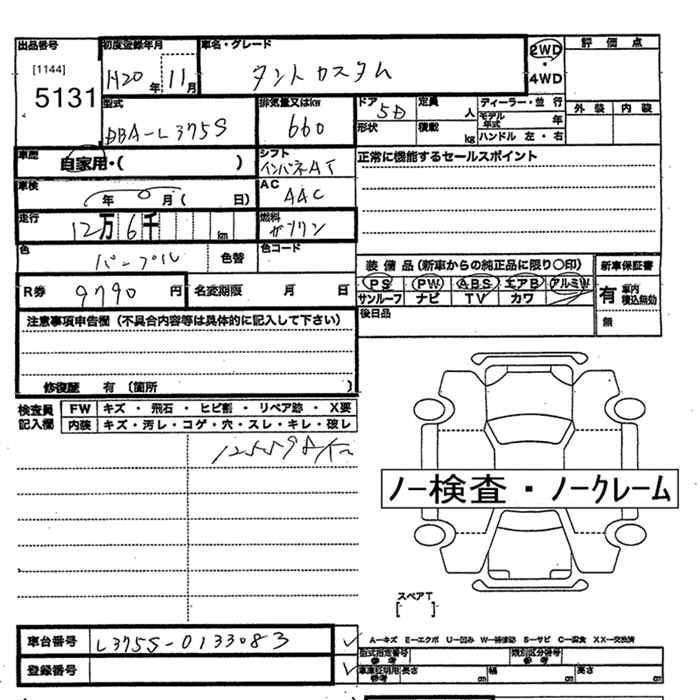 出品番号 初度登録年月 車名・グレード 2WD 評価点
[1144] H20年 11月 タントカスタム ・
5131 4WD
型式 排気量又はkw ドア 5D 定員 人 ディーラー・並行 外装 内装
DBA-L375S 660 形状 積載 kg モデル年式 年
ハンドル 左・右
車歴 自家用・( ) シフト インパネAT 正常に機能するセールスポイント
車検 年 0 月( 日) AC AAC
走行 12万6千 km 燃料 ガソリン
色 パープル 色替 色コード
装備品(新車からの純正品に限り○印) 新車保証書
R券 9790円 名変期限 月 日 PS PW ABS エアB アルミW 有 車内 積込無効
サンルーフ ナビ TV カワ
注意事項申告欄(不具合内容等は具体的に記入して下さい) 後日品 無
修復歴 有 〔箇所 〕
検査員 FW キズ・飛石・ヒビ割・リペア跡・X要
記入欄 内装 キズ・汚レ・コゲ・穴・スレ・キレ・破レ
125598km
ノー検査・ノークレーム
スペアT
[ ]
車台番号 L375S-0133083 A―キズ E―エクボ U―凹み W―補修跡 S―サビ C―腐食 XX―交換済
型式指定番号 参考 類別区分番号 参考
登録番号 車庫証明用 参考 長さ cm 幅 cm 高さ cm